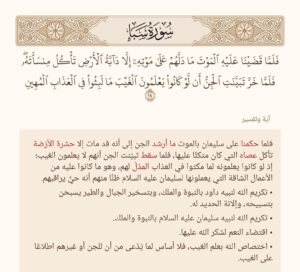 سُورَةُ سَبَإٍ
فَلَمَّا قَضَيْنَا عَلَيْهِ الْمَوْتَ مَا دَلَّهُمْ عَلَىٰ مَوْتِهِ إِلَّا دَابَّةُ الْأَرْضِ تَأْكُلُ مِنسَأَتَهُ
فَلَمَّا خَرَّ تَبَيَّنَتِ الْجِنُّ أَن لَّوْ كَانُوا يَعْلَمُونَ الْغَيْبَ مَا لَبِثُوا فِي الْعَذَابِ الْمُهِينِ
١٤
آية وتفسير
فلما حكمنا على سليمان بالموت ما أرشد الجن إلى أنه قد مات إلا حشرة الأرضة
تأكل عصاه التي كان متكئًا عليها، فلما سقط تبيّنت الجن أنهم لا يعلمون الغيب؛
إذ لو كانوا يعلمونه لما مكثوا في العذاب المذلّ لهم، وهو ما كانوا عليه من
الأعمال الشاقة التي يعملونها لسليمان عليه السلام ظنًّا منهم أنه حيّ يراقبهم.
• تكريم الله لنبيه داود بالنبوة والملك، وبتسخير الجبال والطير يسبحن
بتسبيحه، وإلانة الحديد له.
• تكريم الله لنبيه سليمان عليه السلام بالنبوة والملك.
• اقتضاء النعم لشكر الله عليها.
• اختصاص الله بعلم الغيب، فلا أساس لما يُدّعى من أن للجن أو غيرهم اطلاعًا
على الغيب.